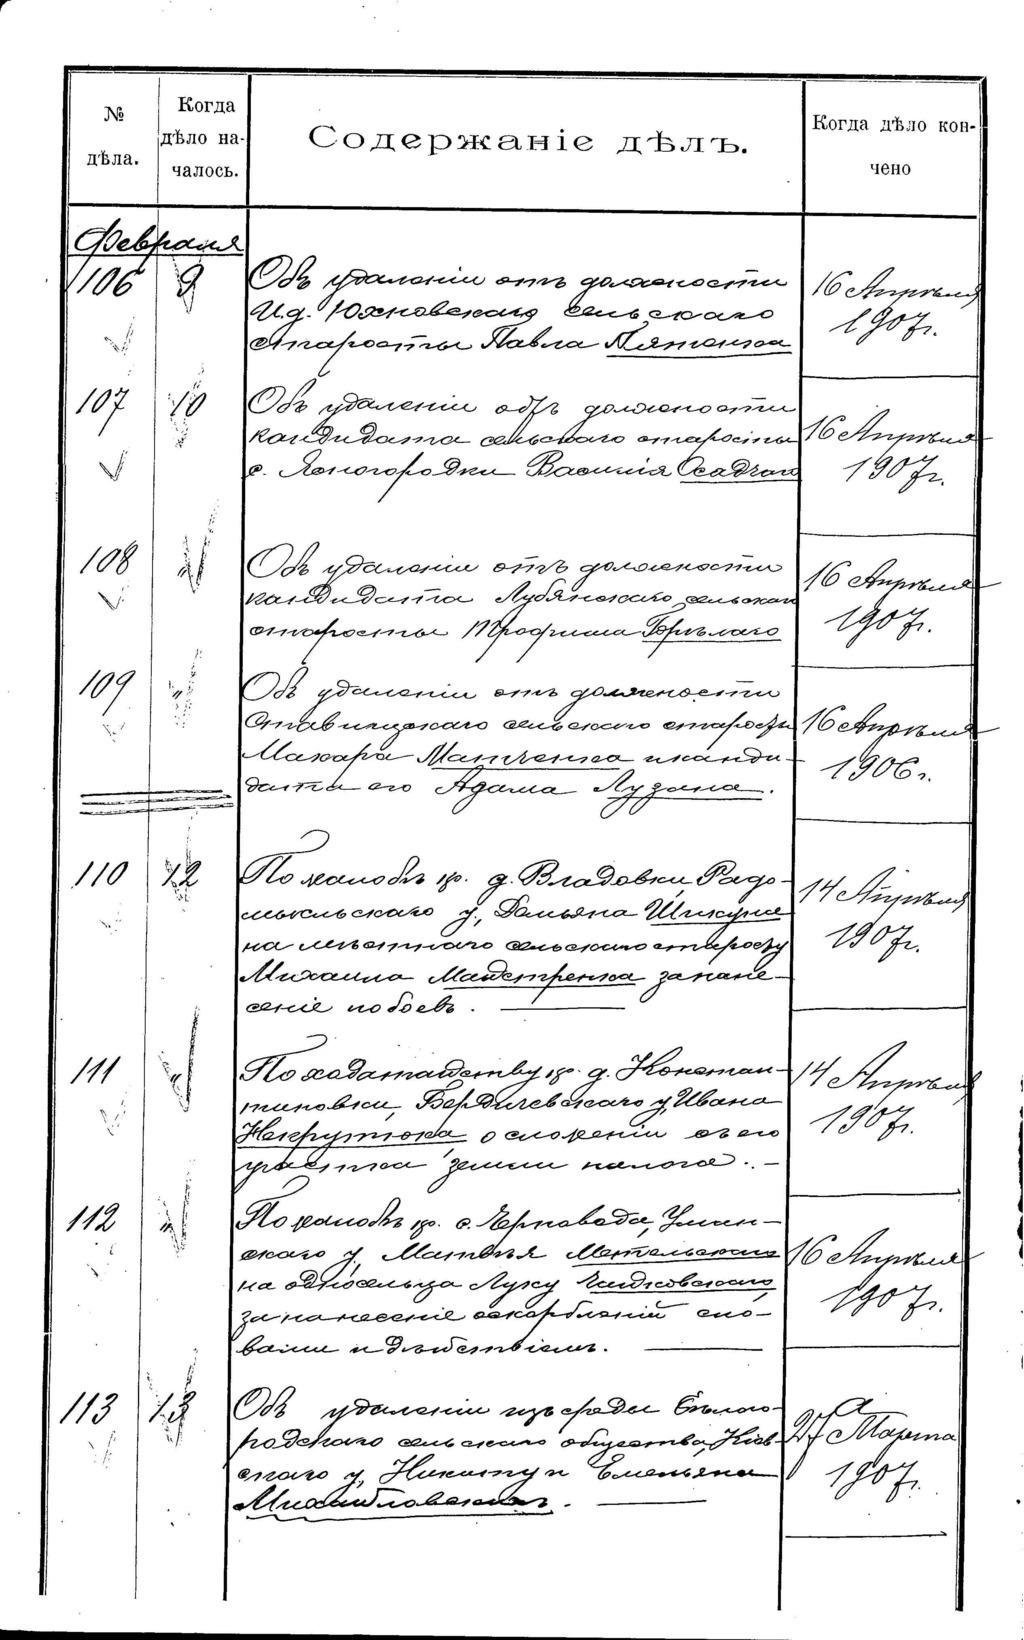 № дѣла.
Когда дѣло началось.
Содержаніе дѣлъ.
Когда дѣло кончено
Февраля
106 9 Объ удаленіи отъ должности 16 Апрѣля
И.д. Юхновскаго сельскаго 1907г.
старосты Павла Пятенка
107 10 Объ удаленіи отъ должности
кандидата сельскаго старосты 16 Апрѣля
с. Ясногородки Василія Осадчаго 1907г.
108 Объ удаленіи отъ должности 16 Апрѣля
кандидата Лубянскаго сельскаго
старосты Трофима 1907г.
109 Объ удаленіи отъ должности
Ставищскаго сельскаго старосты 16 Апрѣля
Макара Матченка и канди- 1906г.
дата его Адама Лузана.
110 12 По жалобѣ кр. д. Владовки, Радо- 14 Апрѣля
мысльскаго у., Демьяна Шикуна
на мѣстнаго сельскаго старосту 1907г.
Михаила Майстренка за нане-
сеніе побоевъ.
111 По ходатайству кр. д. Констан- 14 Апрѣля
тиновки, Бердичевскаго у, Ивана 1907г.
Некрутюка о сложеніи съ его
участка земли налога.
112 По жалобѣ кр. с. Черповода, Уман-
скаго у, Матвѣя Метельскаго 16 Апрѣля
на односельца Луку
за нанесеніе оскорбленій сло- 1907г.
вами и дѣйствіемъ.
113 13 Объ удаленіи изъ среды Бѣлого-
родскаго сельскаго общества, Кіев- 27 Марта
скаго у, Никиту и Емельяна 1907г.
Михайловскихъ.